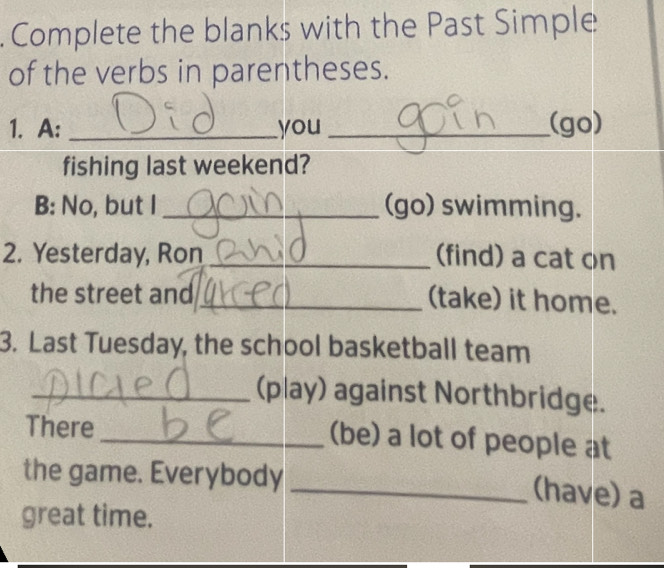 . Complete the blanks with the Past Simple
of the verbs in parentheses.
1. A: Did you goin (go)
fishing last weekend?
B: No, but I goin (go) swimming.
2. Yesterday, Ron (find) a cat on
the street and (take) it home.
3. Last Tuesday, the school basketball team
(play) against Northbridge.
There be (be) a lot of people at
the game. Everybody (have) a
great time.